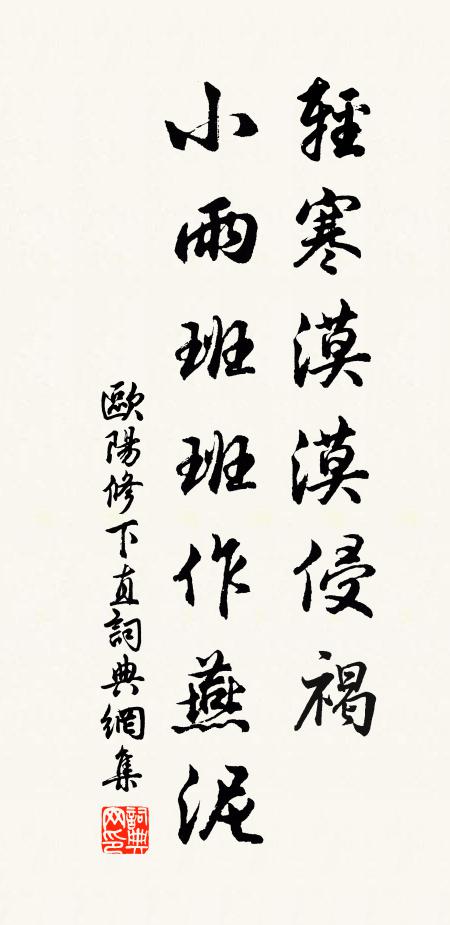 輕寒漠漠侵褐
小雨班班作燕泥
歐陽修下直詞典網集
詞典网印